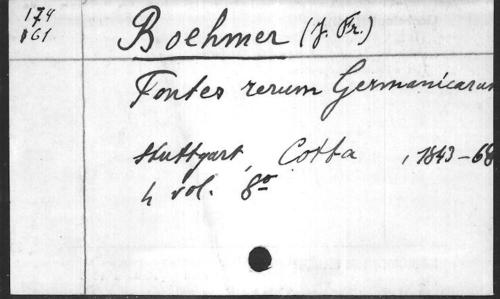 174
061
Boehmer (J. Fr.)
Fontes rerum Germanicarum
Stuttgart, Cotta, 1843-68
4 vol. 8º